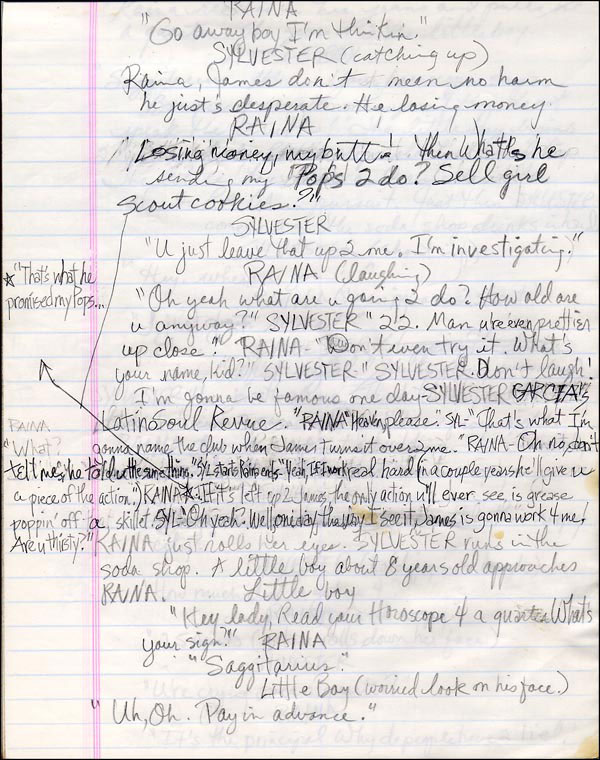 RAINA
"Go away boy I'm thinkin."
SYLVESTER (catching up)
Raina, James don't mean no harm
he just's desperate. He losing money.
RAINA
"Losing money, my butt! Then What's he
sending my Pops 2 do? Sell girl
scout cookies?"
SYLVESTER
"U just leave that up 2 me. I'm investigating."
RAINA (laughing)
"Oh yeah what are u going 2 do? How old are
u anyway?" SYLVESTER "22. Man u're even prettier
up close." RAINA - "Don't even try it. What's
your name, kid?" SYLVESTER - "SYLVESTER. Don't laugh!
I'm gonna be famous one day - SYLVESTER GARCIA's
Latin Soul Revue. "RAINA "Heaven please". SYL - "That's what I'm
gonna name the club when James turns it over 2 me. "RAINA - Oh no, don't
tell me, he told u the same thing. SYL starts 2
"Yeah, If I work real hard (in a couple years he'll give u
a piece of the action.") RAINA ☆ If it's left up 2 James the only action u'll ever see is grease
poppin' off a skillet. SYL - "Oh yeah? Well one day the way I see it, James is gonna work 4 me!
RAINA just rolls her eyes. SYLVESTER runs in the
soda shop. A little boy about 8 years old approaches
RAINA. Little boy
"Hey lady, Read your Horoscope 4 a quarter. What's
your sign?" RAINA
"Saggitarius."
Little Boy (worried look on his face.)
"Uh, Oh. Pay in advance."
☆ "That's what he
promised my Pops...
RAINA
"What?
Are u thirsty?"
"It's the principal. Why do people